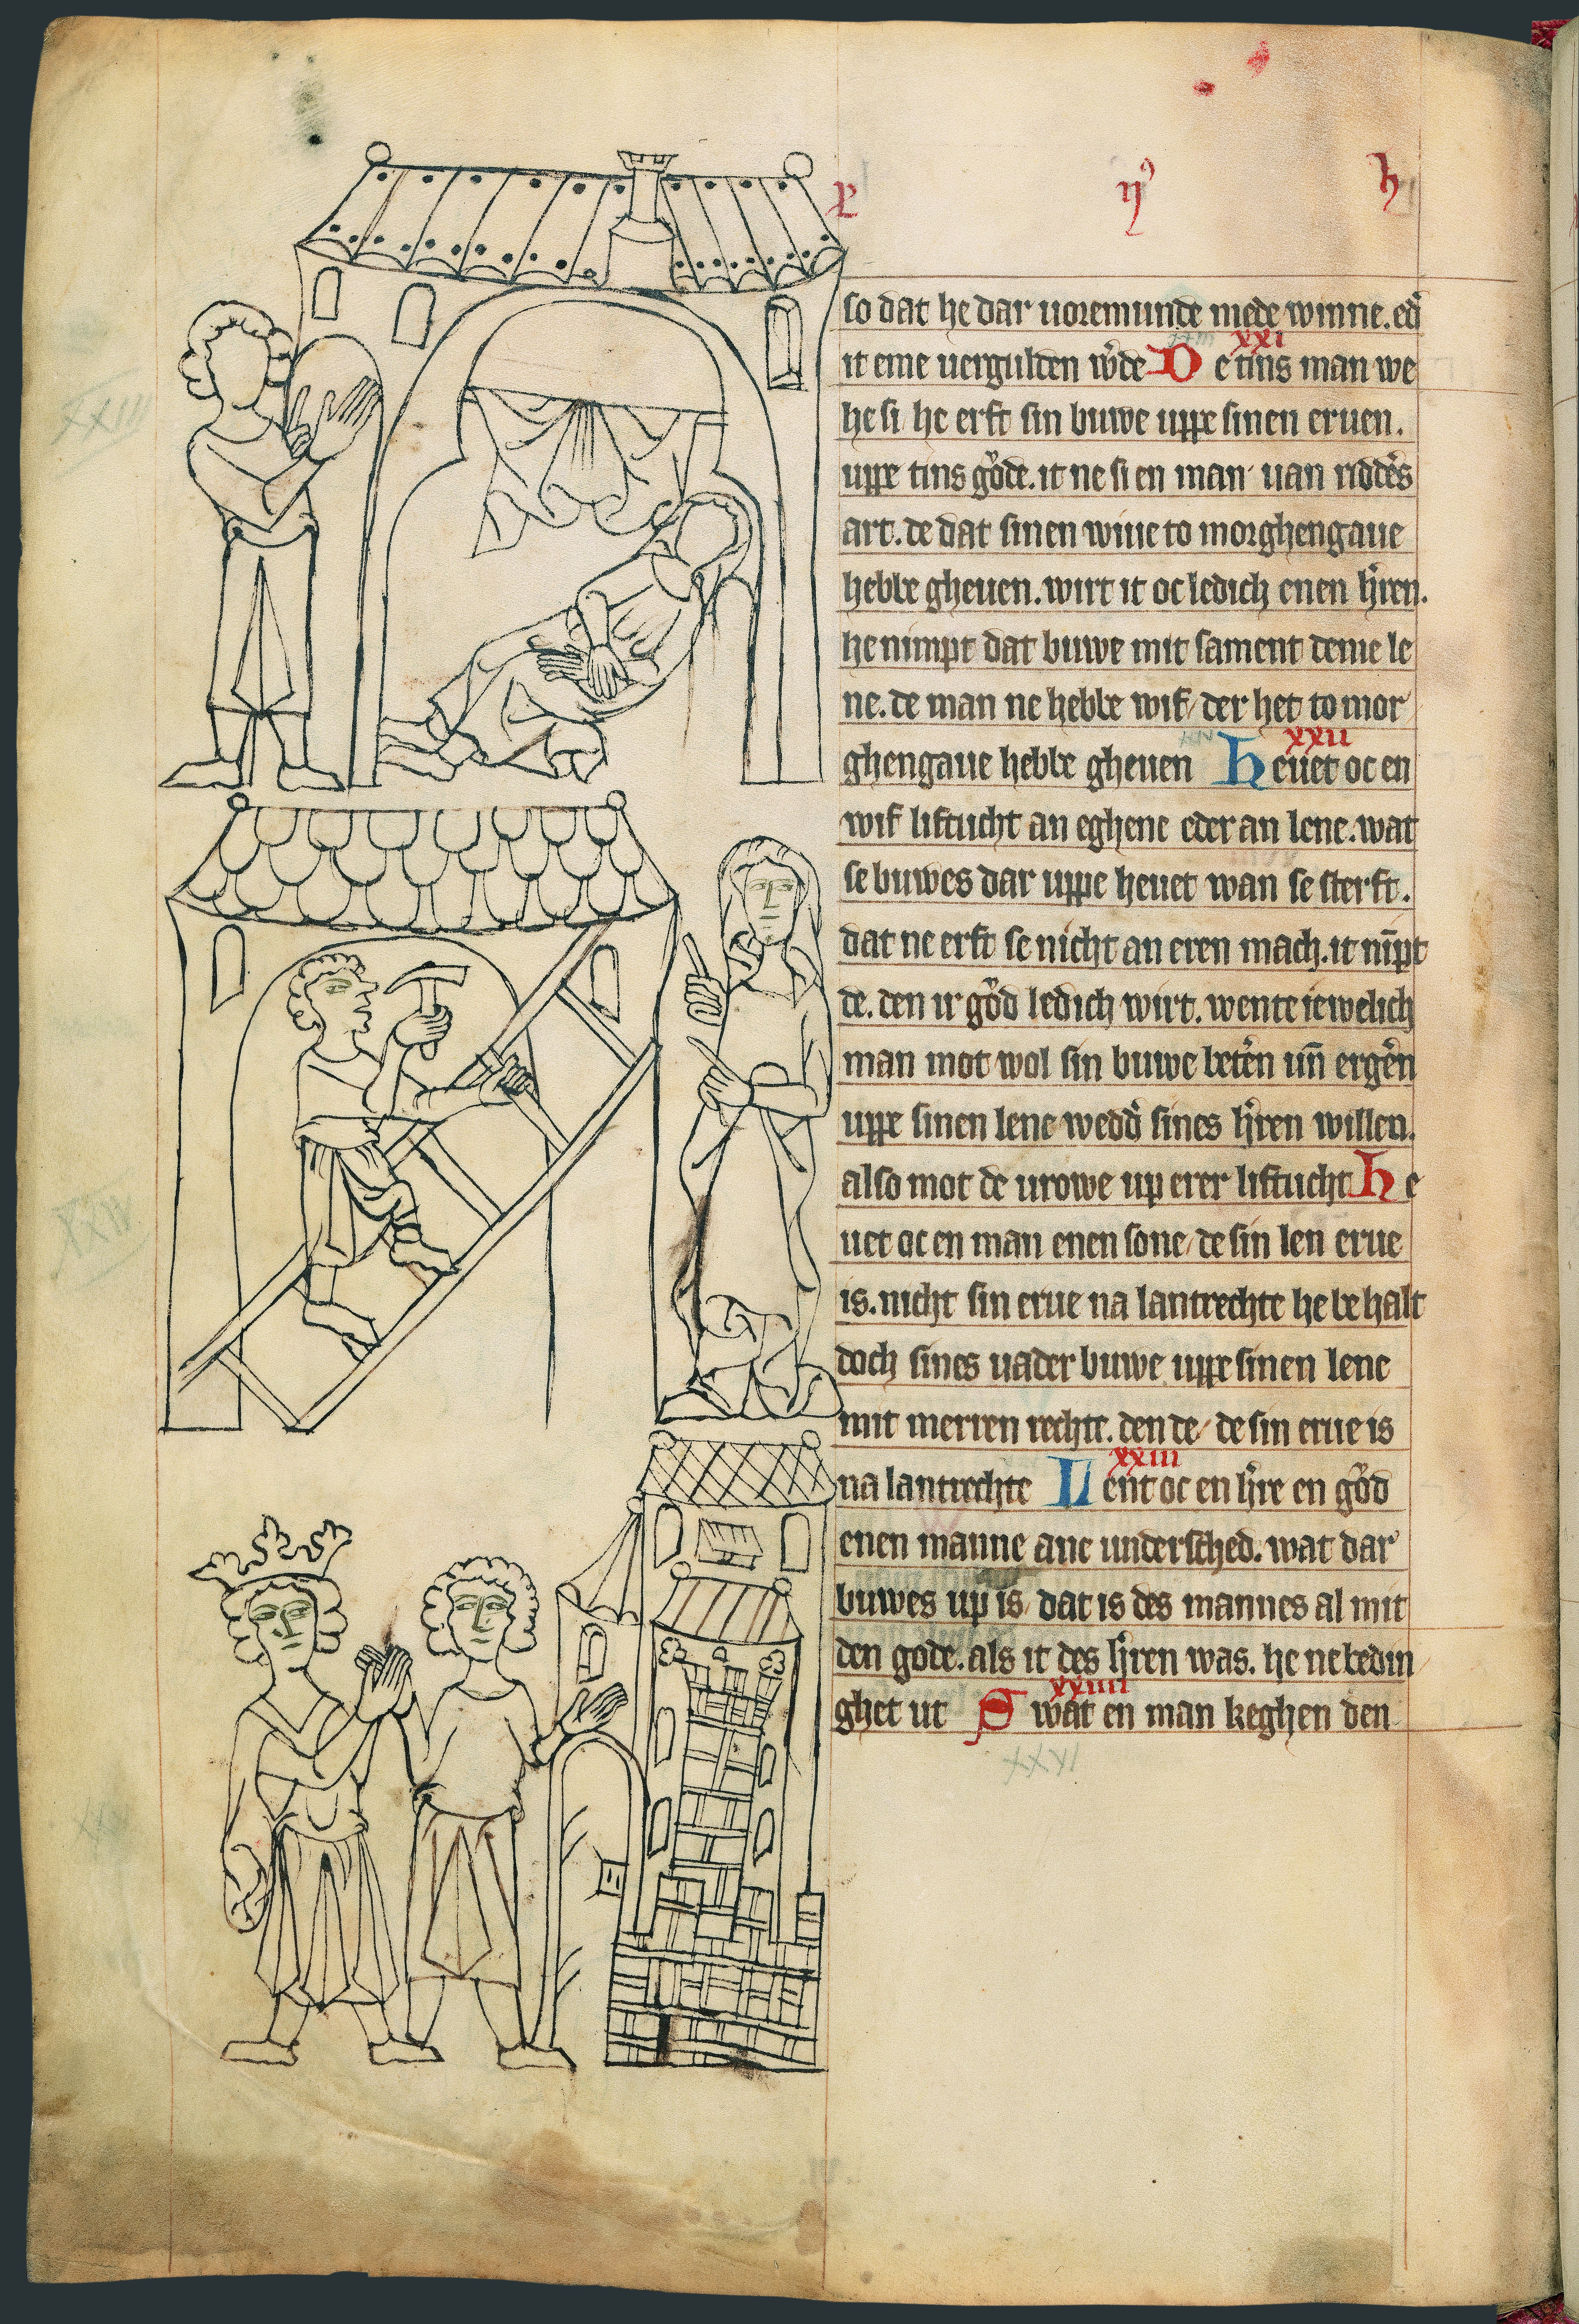 so dat he dar uoremunde mede winne. ed᷑
it eme uergulden wͦde De tins man we
XXI
he si he erft sin buwe uppe sinen eruen.
uppe tins gͦde. it ne si en man uan ridd᷑s
art. de dat sinen wiue to morghengaue
hebbe gheuen. wirt it oc ledich enen h᷑ren.
he nimpt dat buwe mit sament deme le
ne. de man ne hebbe wif/ der het to mor
XXII
ghengaue hebbe gheuen Heuet oc en
wif liftucht an eghene eder an lene. wat
se buwes dar uppe heuet wan se sterft.
dat ne erft se nicht an eren mach. it nīpt
de. den ir gͦd ledich wirt. wente iewelich
man mot wol sin buwe bet᷑n un̄ erg᷑n
uppe sinen lene wedd᷑ sines h᷑ren willen.
also mot de urowe up erer liftucht He
uet oc en man enen sone/ de sin len erue
is. nicht sin erue na lantrechte he behalt
doch sines uader buwe uppe sinen lene
mit merren rechte. den de/ de sin erue is
XXIII
na lantrechte Lent oc en h᷑re en gͦd
enen manne ane undersched. wat dar
buwes up is/ dat is des mannes al mit
den gode. als it des h᷑ren was. he ne bedin
XXIIII
ghet ut Swat en man keghen den
XXVI